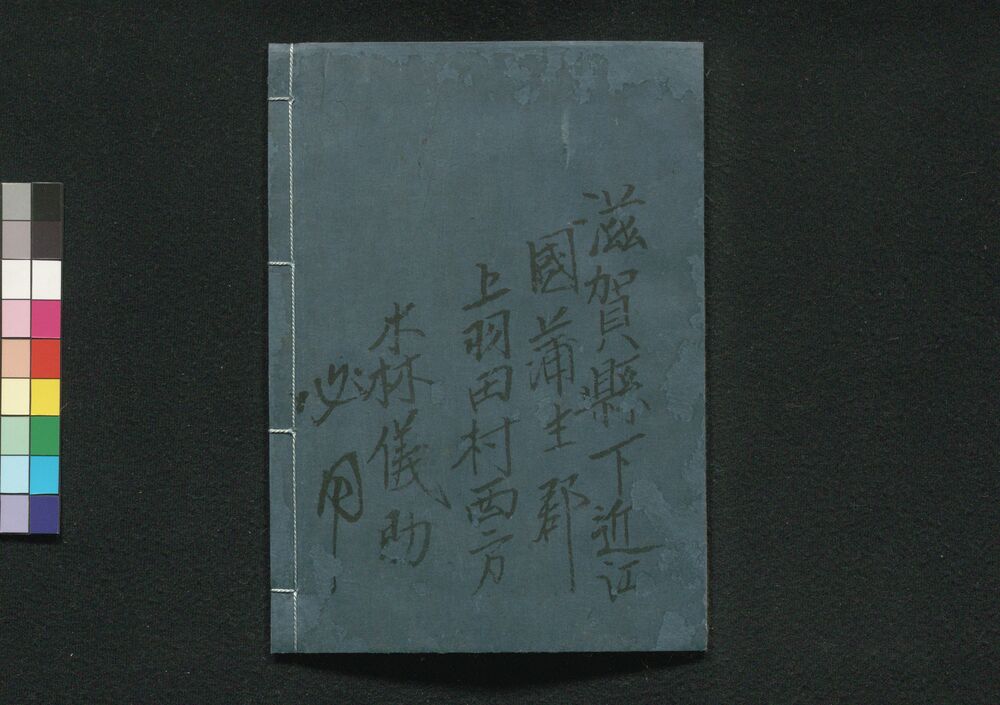 滋賀縣下近江
國蒲生郡
上羽田村西方
木林儀助
必用